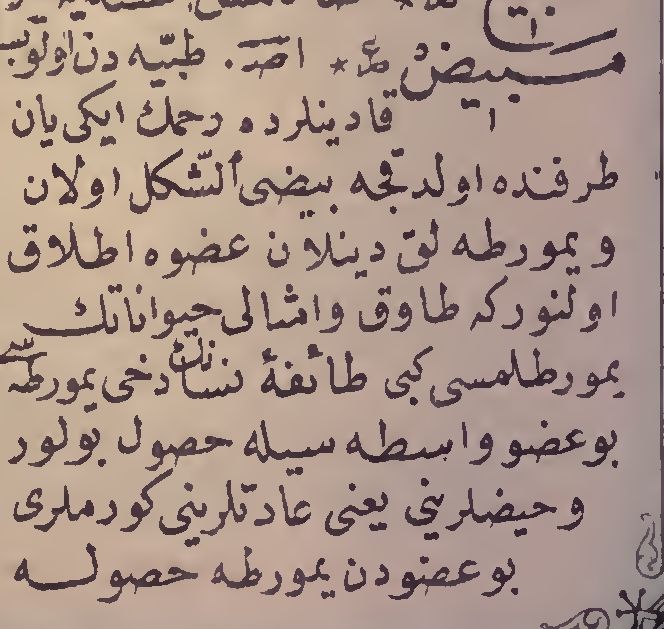 مبيض ع * اصـ. طبّيه دن اولوب
قادينلرده رحمك ايكى يان
طرفنده اولدقجه بيضى الشّكل اولان
و يمورطه لق دينلان عضوه اطلاق
اولنوركه طاوق وامثالى حيواناتك
يمورطلمسى كبى طائفهٔ نسانك دخى يمورطه سى
بو عضو واسطه سيله حصول بولور
وحيضلرينى يعنى عادتلرينى كورملرى
بو عضودن يمورطه حصولـه